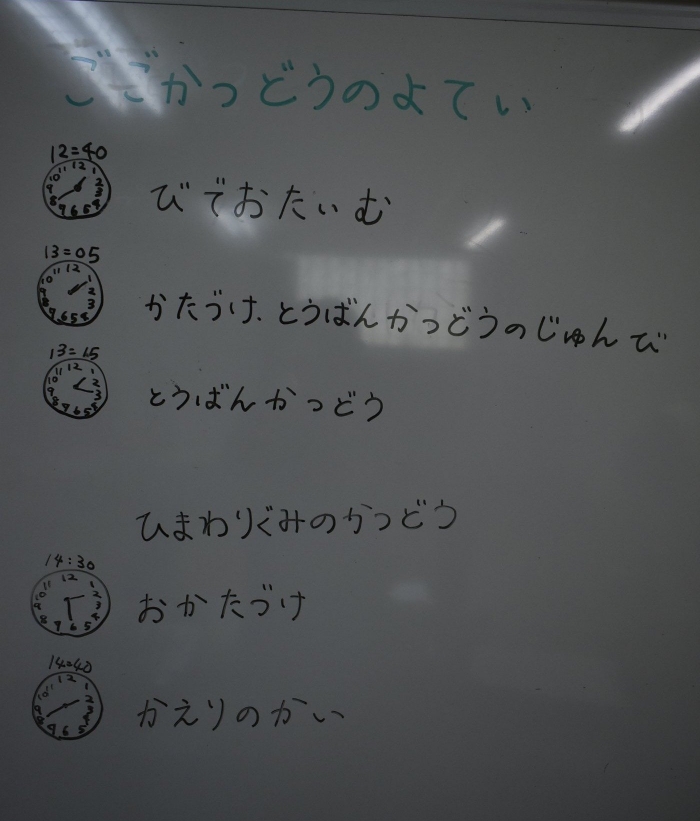 ごごかつどうのよてい
12=40
びでおたいむ
13=05
かたづけ、とうばんかつどうのじゅんび
13=15
とうばんかつどう
ひまわりぐみのかつどう
14:30
おかたづけ
14=40
かえりのかい